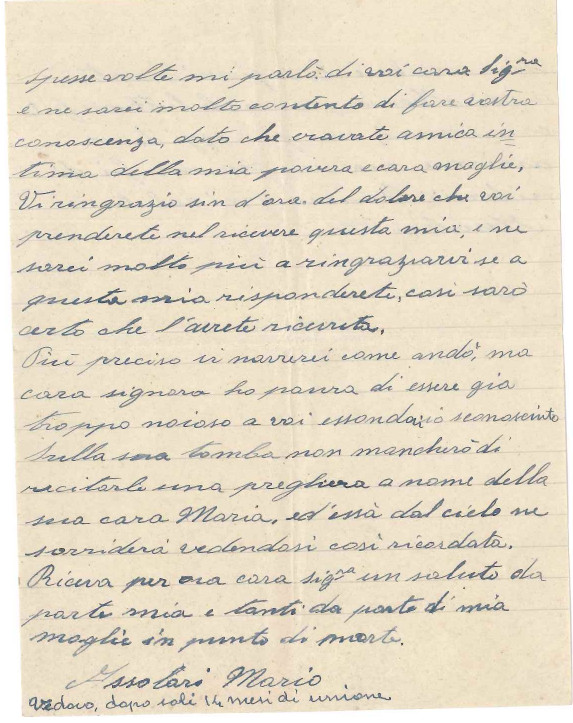 spesse volte mi parlò di voi cara Sigra
e ne sarei molto contento di fare vostra
conoscenza, dato che eravate amica in
tima della mia povera e cara moglie.
Vi ringrazio sin d'ora del dolore che voi
prenderete nel ricevere questa mia, e ne
sarei molto più a ringraziarvi se a
questa mia risponderete, così sarò
certo che l'avrete ricevuta.
Più preciso vi narrerei come andò, ma
cara signora ho paura di essere già
troppo noioso a voi essendo io sconosciuto
Sulla sua tomba non mancherò di
recitarle una preghiera a nome della
sua cara Maria, ed essa dal cielo ne
sorriderà vedendosi così ricordata.
Riceva per ora cara sigra un saluto da
parte mia e tanti da parte di mia
moglie in punto di morte.
Assolari Mario
Vedovo, dopo soli 14 mesi di unione